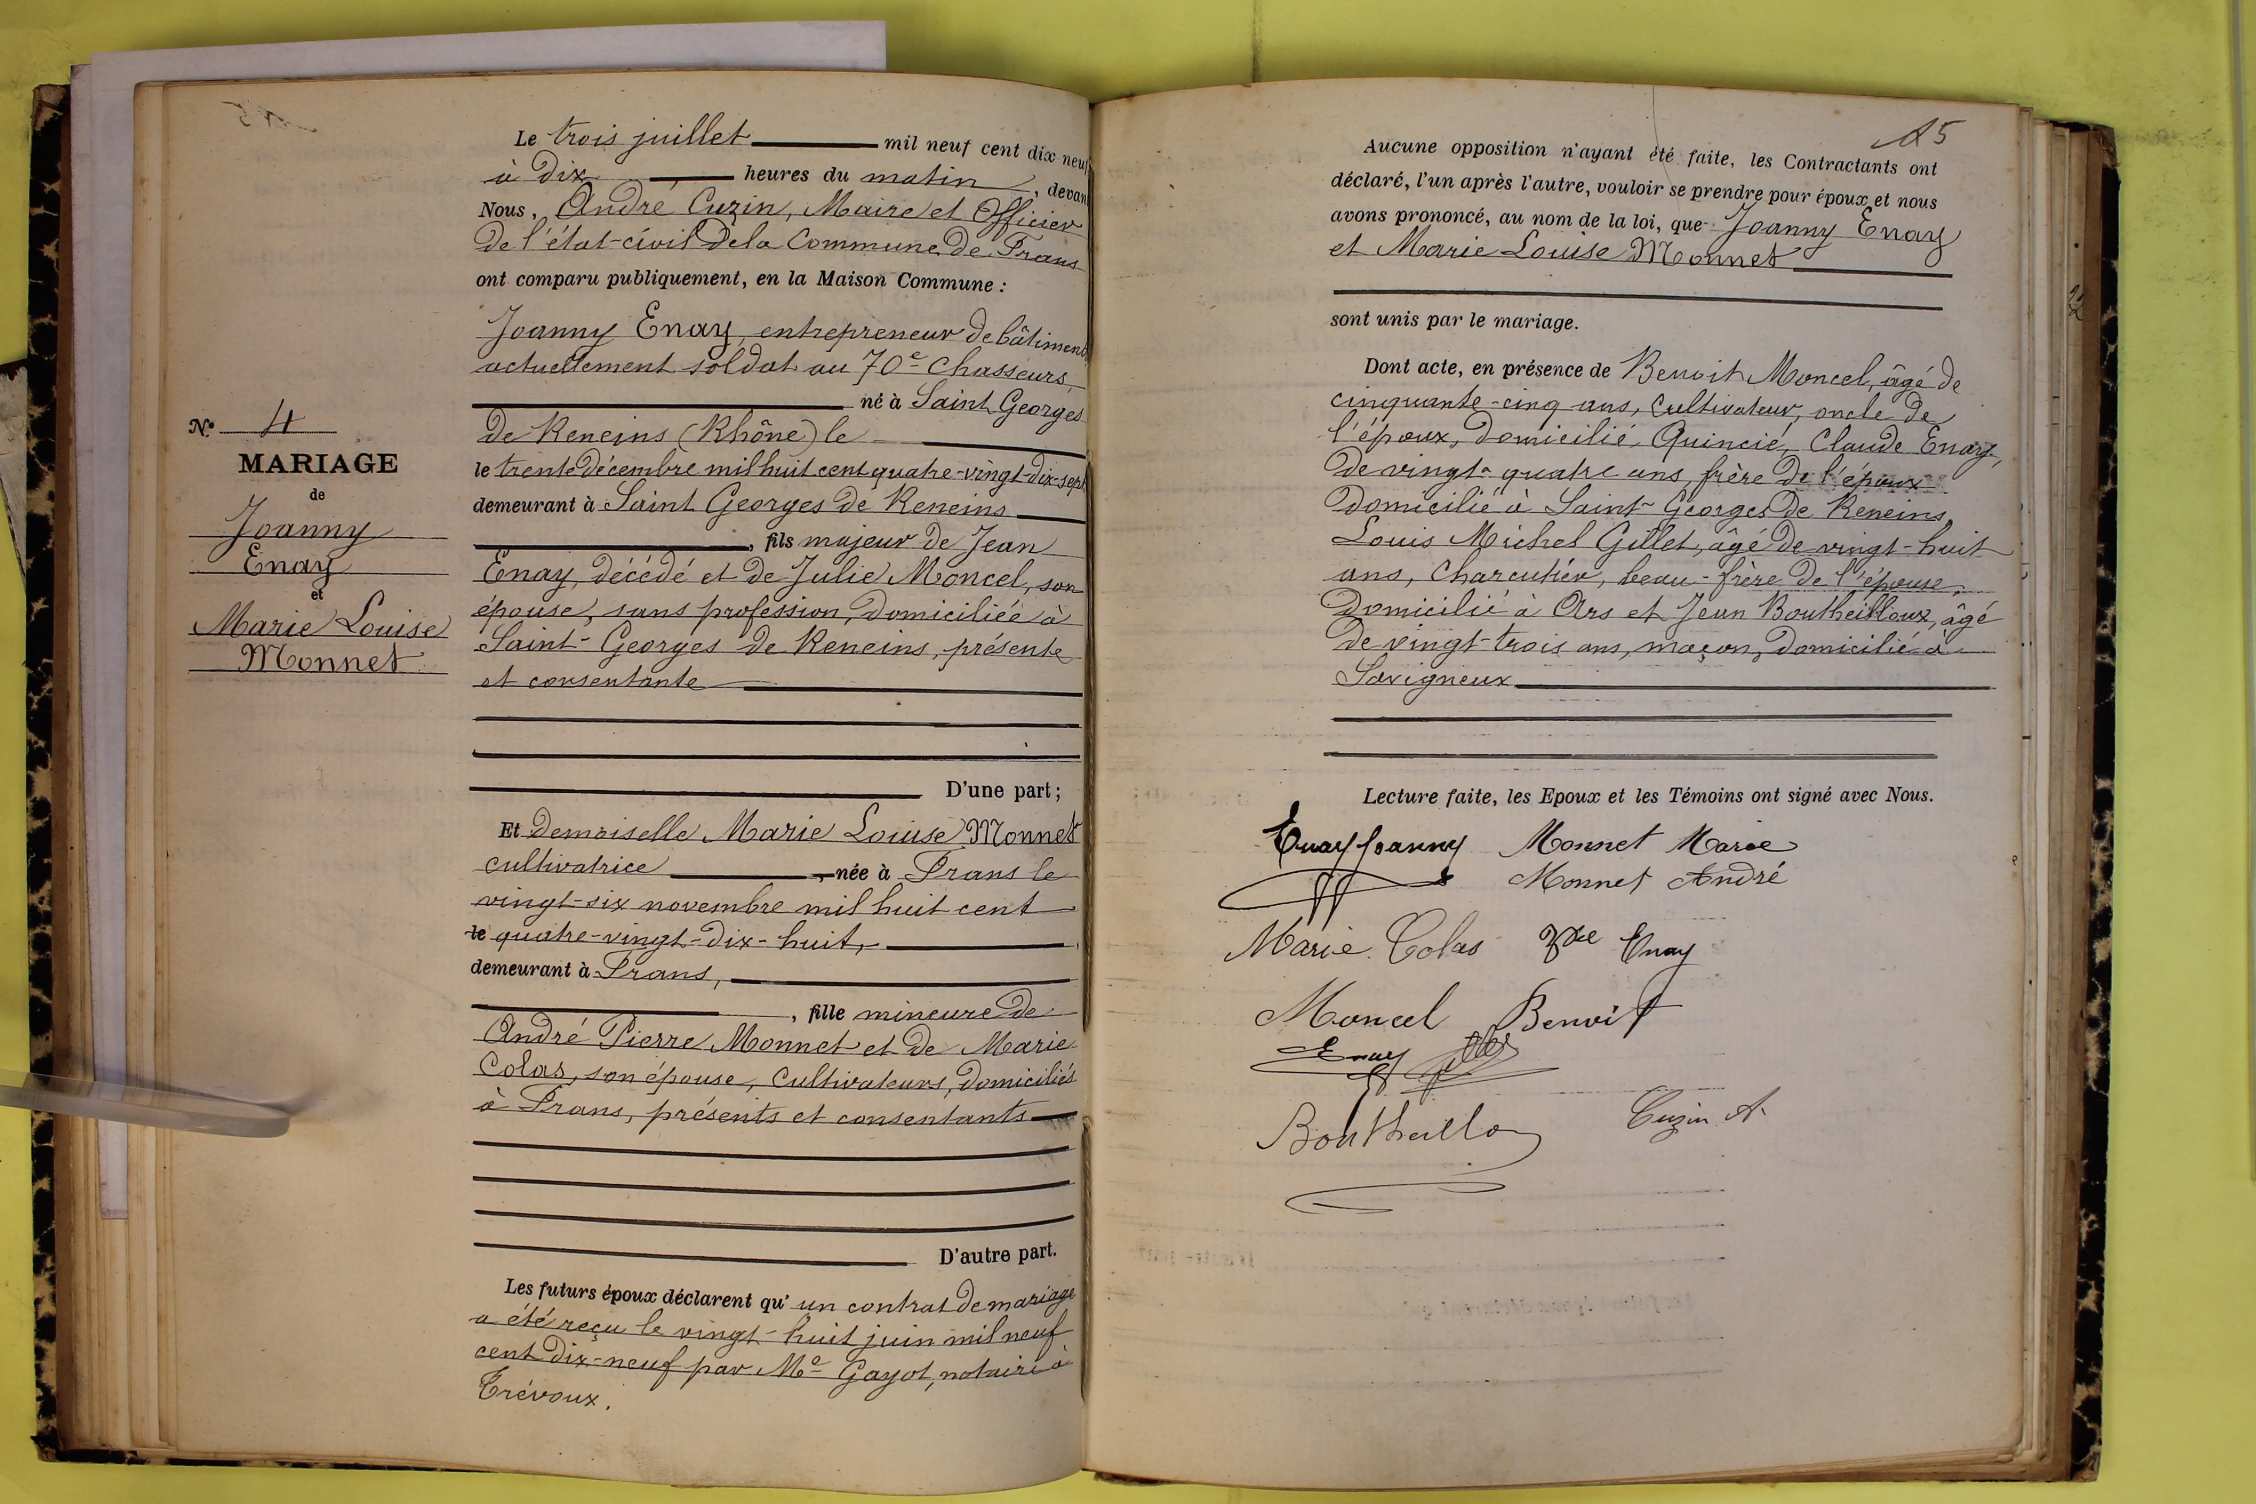 Le trois juillet mil neuf cent dix neuf
à dix heures du matin, devan
Nous, André Cuzin, Maire et Officier
de l'état-civil de la Commune de Frans
ont comparu publiquement, en la Maison Commune :
Joanny Enay, entrepreneur de bâtiment
actuellement soldat au 70e Chasseurs,
né à Saint Georges
de Reneins (Rhône) le
le trente décembre mil huit cent quatre-vingt-dix-sept
demeurant à Saint Georges de Reneins
, fils majeur de Jean
Enay, décédé et de Julie Moncel, son
épouse, sans profession, domiciliée à
Saint-Georges de Reneins, présente
et consentante
D'une part ;
Et demoiselle Marie Louise Monnet
cultivatrice, née à Frans le
vingt-six novembre mil huit cent
le quatre-vingt-dix-huit,
demeurant à Frans,
, fille mineure de
André Pierre Monnet et de Marie
Colas, son épouse, cultivateurs, domiciliés
à Frans, présents et consentants
D'autre part.
Les futurs époux déclarent qu'un contrat de mariage
a été reçu le vingt-huit juin mil neuf
cent dix-neuf par Me Gayot, notaire à
Trévoux.
No 4
MARIAGE
de
Joanny
Enay
et
Marie Louise
Monnet
15
Aucune opposition n'ayant été faite, les Contractants ont
déclaré, l'un après l'autre, vouloir se prendre pour époux et nous
avons prononcé, au nom de la loi, que Joanny Enay
et Marie Louise Monnet
sont unis par le mariage.
Dont acte, en présence de Benoit Moncel, âgé de
cinquante-cinq ans, cultivateur, oncle de
l'époux, domicilié Quincié, Claude Enay,
de vingt-quatre ans, frère de l'époux
domicilié à Saint-Georges de Reneins,
Louis Michel Gillet, âgé de vingt-huit
ans, charcutier, beau-frère de l'épouse,
domicilié à Ars et Jean Boutheilloux, âgé
de vingt-trois ans, maçon, domicilié à
Savigneux
Lecture faite, les Epoux et les Témoins ont signé avec Nous.
Enay Joanny Monnet Marie
Monnet André
Marie Colas Vve Enay
Moncel Benoit
Enay
Boutheillo Cuzin A.